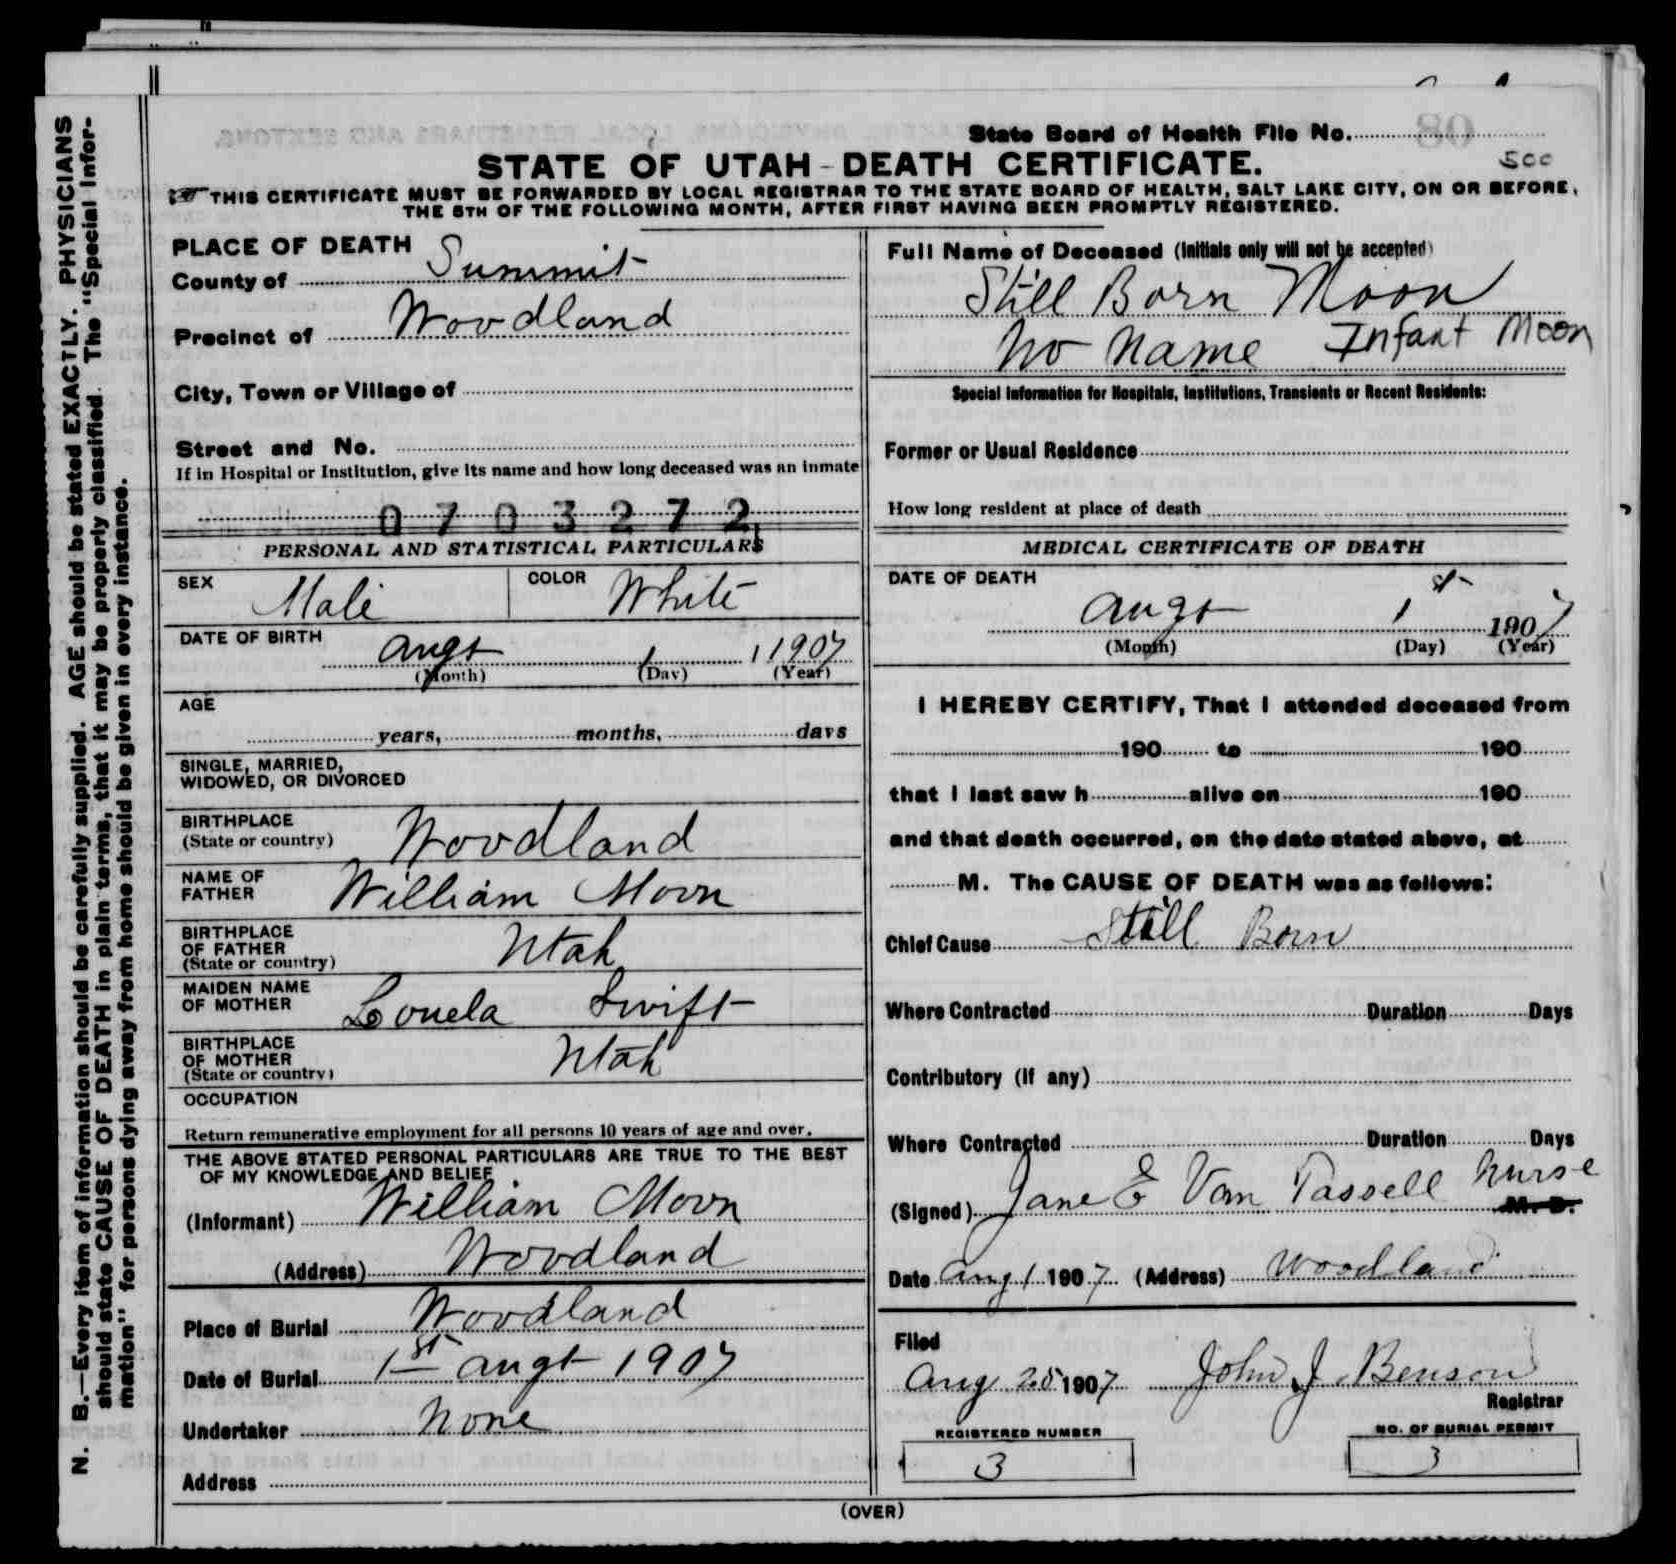 State Board of Health File No.
500
STATE OF UTAH - DEATH CERTIFICATE.
THIS CERTIFICATE MUST BE FORWARDED BY LOCAL REGISTRAR TO THE STATE BOARD OF HEALTH, SALT LAKE CITY, ON OR BEFORE,
THE 5TH OF THE FOLLOWING MONTH, AFTER FIRST HAVING BEEN PROMPTLY REGISTERED.
PLACE OF DEATH
County of Summit
Precinct of Woodland
City, Town or Village of
Street and No.
If in Hospital or Institution, give its name and how long deceased was an inmate
0703272
PERSONAL AND STATISTICAL PARTICULARS
SEX Male COLOR White
DATE OF BIRTH Augt 1 1907
(Month) (Day) (Year)
AGE
years, months, days
SINGLE, MARRIED,
WIDOWED, OR DIVORCED
BIRTHPLACE
(State or country) Woodland
NAME OF
FATHER William Moon
BIRTHPLACE
OF FATHER
(State or country) Utah
MAIDEN NAME
OF MOTHER Louela Swift
BIRTHPLACE
OF MOTHER
(State or country) Utah
OCCUPATION
Return remunerative employment for all persons 10 years of age and over.
THE ABOVE STATED PERSONAL PARTICULARS ARE TRUE TO THE BEST
OF MY KNOWLEDGE AND BELIEF
(Informant) William Moon
(Address) Woodland
Place of Burial Woodland
Date of Burial 1st Augt 1907
Undertaker None
Address
Full Name of Deceased (Initials only will not be accepted)
Still Born Moon
No Name Infant Moon
Special Information for Hospitals, Institutions, Transients or Recent Residents:
Former or Usual Residence
How long resident at place of death
MEDICAL CERTIFICATE OF DEATH
DATE OF DEATH
Augt 1st 1907
(Month) (Day) (Year)
I HEREBY CERTIFY, That I attended deceased from
190 to 190
that I last saw h alive on 190
and that death occurred, on the date stated above, at
M. The CAUSE OF DEATH was as follows:
Chief Cause Still Born
Where Contracted Duration Days
Contributory (if any)
Where Contracted Duration Days
(Signed) Jane E Van Tassell Nurse M. D.
Date Aug 1 1907 (Address) Woodland
Filed
Aug 25 1907 John J. Benson
Registrar
REGISTERED NUMBER
3
NO. OF BURIAL PERMIT
3
(OVER)
N. B.—Every item of information should be carefully supplied. AGE should be stated EXACTLY. PHYSICIANS
should state CAUSE OF DEATH in plain terms, that it may be properly classified. The "Special Infor-
mation" for persons dying away from home should be given in every instance.